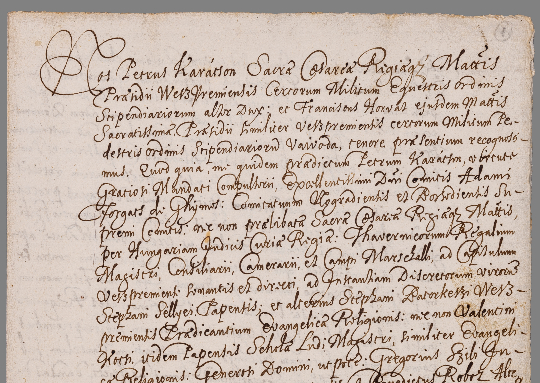 Nos Petrus Karácson Sacræ Cæsareæ Regiæq; Mattis
Præsidii Weszpremiensis Certorum Militum Equestris ordinis
Stipendiariorum alter Dux; et Franciscus Horvát ejusdem Mattis
Sacratissimæ Præsidii similiter Veszpremiensis certorum Militum Pe-
destris ordinis Stipendiariorū Vaivoda, tenore præsentium recognosci-
mus. Quod quia, me quidem prædictum Petrum Karácson, virtute
Gratiosi Mandati Excellentissimi Dni Comitis Adami
Forgats de Ghymes: Comitatuum Nogradiensis et Borsodiensis Su-
premi Comitis: nec non prælibatæ Sacræ Cæsareæ Regiæq; Mattis,
per Hungariam Judicis Curiæ Regiæ: Thavernicorum Regalium
Magistri, Consiliarii, Camerarii, et Campi Marsczalli, ad Capitulum
Veszpremiensi sonantis et directi, ad Instantiam Discretorum virorum
Stephani Sellyei Papensis; et alterius Stephani Batorkeszi Wesz-
premiensis Prædicantium Evangelicæ Religionis: nec non Valentini
itidem Papensis Scholæ Ludi Magistri, similiter Evangeli-
cæ Religionis: Generosi Domini, utpote: Gregorius